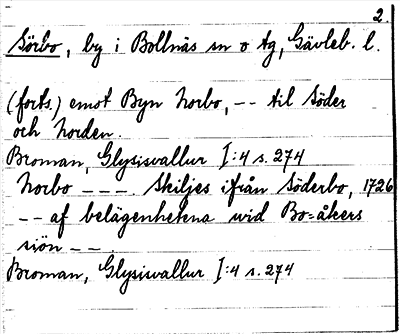 2.
Sörbo, by i Bollnäs sn o tg, Gävleb. l.
(forts.) emot Byn Norbo, -- til Söder
och Norden.
Broman, Glysisvallur I:4 s. 274
Norbo --- Skiljes ifrån Söderbo, 1726
-- af belägenhetena wid Bo=åkers
siön --.
Broman, Glysisvallur I:4 s. 274